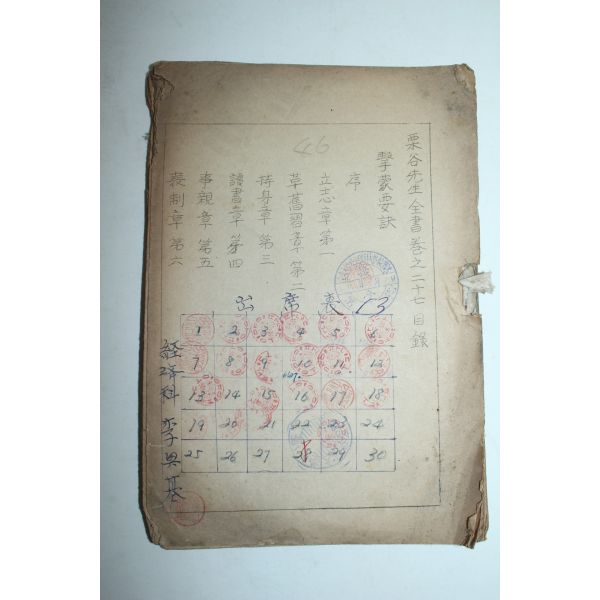 栗谷先生全書卷之二十七 目錄
擊蒙要訣
序
立志章第一
革舊習章第二
持身章第三
讀書章第四
事親章第五
喪制章第六
46
出席表 13
1 2 3 4 5 6
7 8 9 10 11 12
13 14 15 16 17 18
19 20 21 22 23 24
25 26 27 28 29 30
経済科 李興基